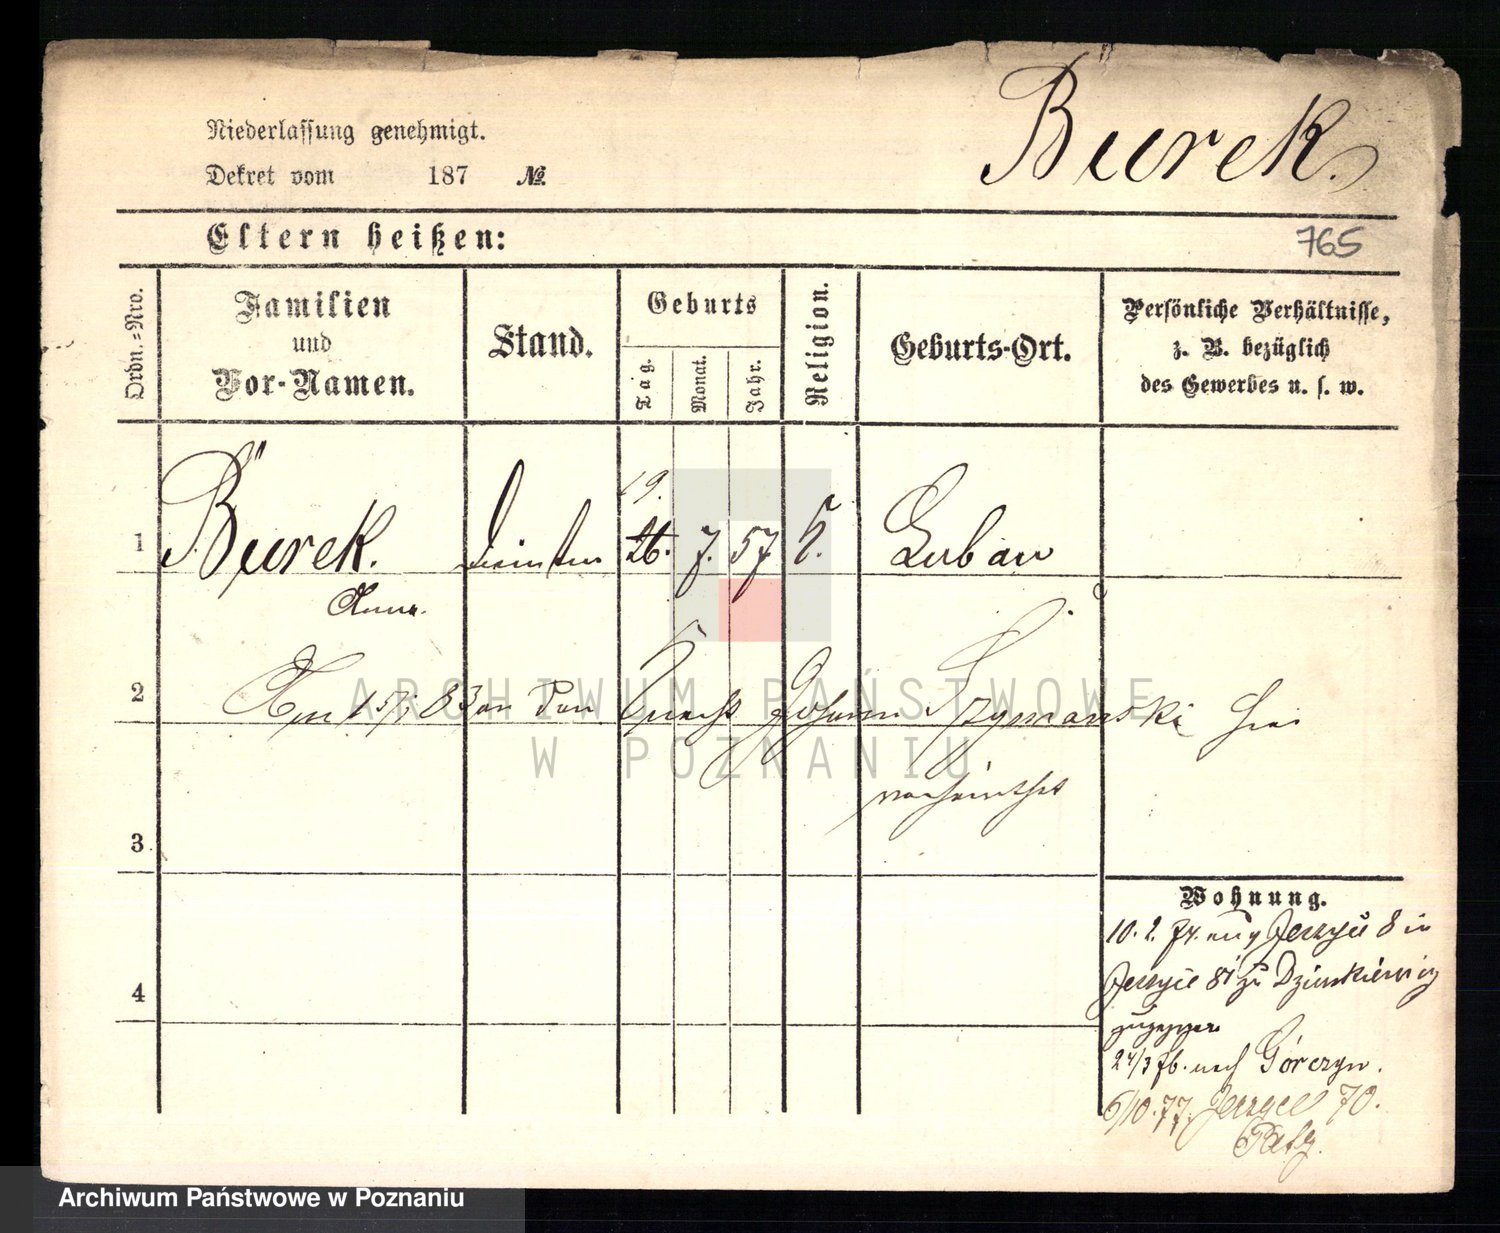 Bürek.
Niederlassung genehmigt.
Dekret vom 187 №
Eltern heißen:
765
Ordn.-Nro.
Familien
und
Vor-Namen.
Stand.
Geburts
Tag.
Monat.
Jahr.
Religion.
Geburts-Ort.
Persönliche Verhältnisse,
z. B. bezüglich
des Gewerbes u. s. w.
19.
1 Bürek. 26. 7. 57 Luban
Anna.
2 Am 83 Knecht Johann Szymanski hier
verheirathet
3
Wohnung.
10. 2. 74. Jerzyce 8 in
4 Jerzyce 81 zu
zugezogen
24/3 76. nach Górczyn.
6/10. 77. Jerzyce 70.
ARCHIWUM PAŃSTWOWE
W POZNANIU
Archiwum Państwowe w Poznaniu